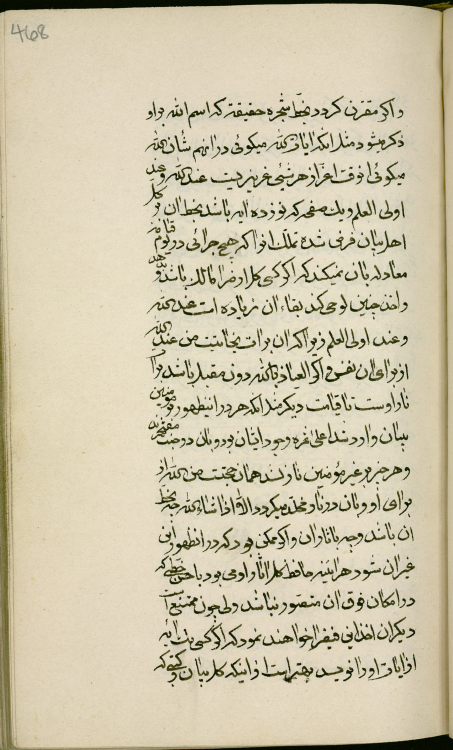 468
و اگر مقترن گردد بخط شجره حقیقة که اسم الله بر او
ذکر میشود مثل اینکه ایات الله میگوئی در انهم شان الله
میگوئی انوقت اعز از هر شیئی عزیزیست عند الله و عند
اولی العلم و یک صفحه که نوزده ایه باشد بخط ان و کل
اهل بیان فرض شده تملک انرا که هیچ جزائی در یوم قیامة
معادله بان نمیکند که اگر کسی کل ارض را مالک باشد و
واخذ چنین لوحی کند بقاء ان زیاده است عند الله
و عند اولی العلم زیرا که ان برات نجاتیست من عند الله
از برای ان نفس و اگر العیاذ بالله دون مقبل باشد برا
نار اوست تا قیامت دیگر مثل انکه هر در انظهور مومنین
ببیان وارد شد اعلی غره وجود ایشان بود و بان در جنت مفتخرند
و هر حزب غیر مؤمنین نازل شد همان حجتست من الله
برای او و بان در نار مخلد میگردد الا اذا شاء الله چه بخط
ان باشد و چه باثار ان و اگر ممکن بود که در انظهور این
غیر ان شود هر اینه حافظ کل اثار او می بود با خط که
در امکان فوق ان متصور نباشد ولی چون ممتنع است
دیگران اخذ این فیض را خواهند نمود که اگر کسی یک ایه
از ایات او را نویسد بهتر است از اینکه کل بیان و کتبی که